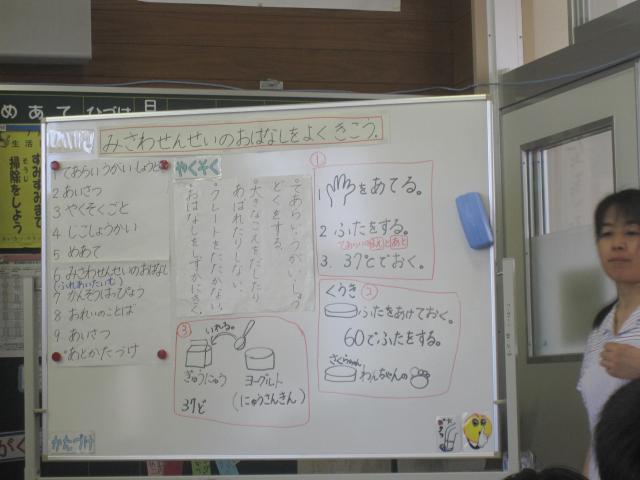 めあて ひづけ 日
生活
すみずみまで
掃除をしよう
そうじ
みさわせんせいのおはなしをよくきこう。
1 てあらいうがいしょうど
2 あいさつ
3 やくそくごと
4 じこしょうかい
5 めあて
6 みさわせんせいのおはなし
(ふれあいたいむ)
7 かんそうはっぴょう
8 おれいのことば
9 あいさつ
あとかたづけ
やくそく
・てあらい、うがい、しょう
どくをする。
・大きなこえをだしたり
あばれたりしない。
・プレートをたたかない。
・おはなしをしずかにきく。
①
1 をあてる。
2 ふたをする。
てあらいのまえとあと
3. 37℃でおく。
くうき ②
ふたをあけておく。
60でふたをする。
さくらちゃん
わんちゃんの
③
いれる。
ぎゅうにゅう
ヨーグルト
37ど
(にゅうさんきん)
かたづけ